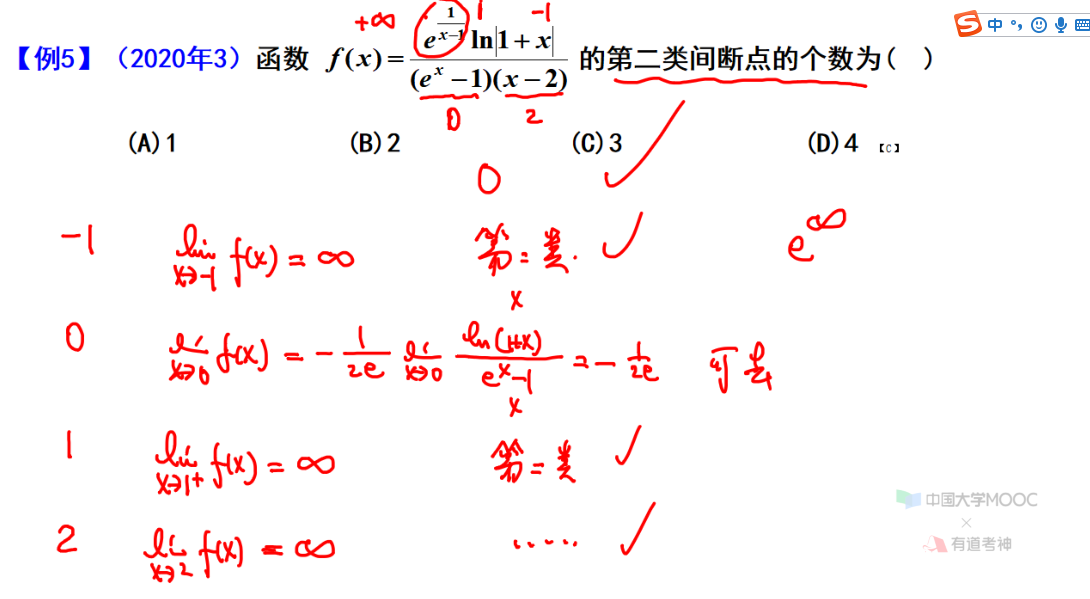 中
+∞ 1 -1
【例5】（2020年3）函数 f(x)=\frac{e^{\frac{1}{x-1}}ln|1+x|}{(e^x-1)(x-2)} 的第二类间断点的个数为( )
0 2
(A)1 (B)2 (C)3 (D)4 【C】
0
-1 lim_{x→-1} f(x) = ∞ 第二类. ✓ e^∞
x
0 lim_{x→0} f(x) = -\frac{1}{2e} lim_{x→0} \frac{ln(1+x)}{e^x-1} = -\frac{1}{2e} 可去
x
1 lim_{x→1+} f(x) = ∞ 第二类 ✓
中国大学MOOC
×
2 lim_{x→2} f(x) = ∞ ...... ✓
有道考神